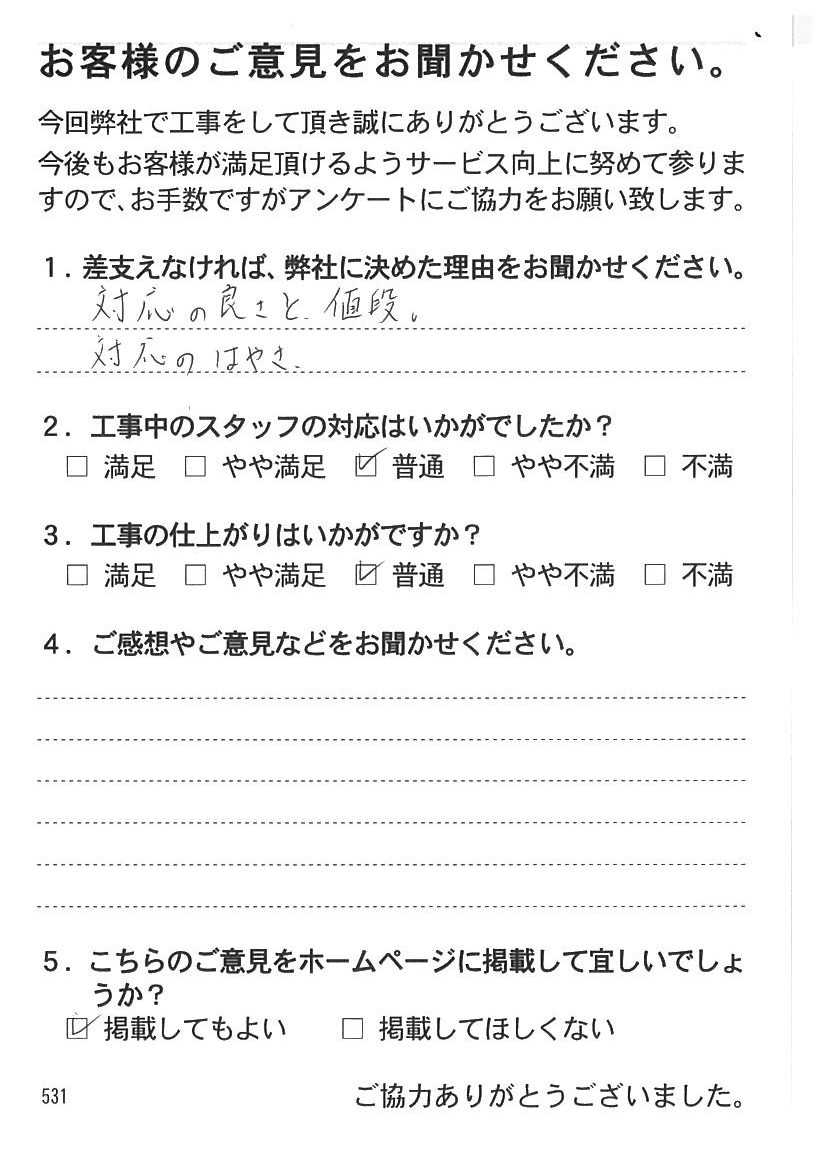 お客様のご意見をお聞かせください。
今回弊社で工事をして頂き誠にありがとうございます。
今後もお客様が満足頂けるようサービス向上に努めて参りま
すので、お手数ですがアンケートにご協力をお願い致します。
１．差支えなければ、弊社に決めた理由をお聞かせください。
対応の良さと、値段。
対応のはやさ、
２．工事中のスタッフの対応はいかがでしたか？
□ 満足 □ やや満足 ☑ 普通 □ やや不満 □ 不満
３．工事の仕上がりはいかがですか？
□ 満足 □ やや満足 ☑ 普通 □ やや不満 □ 不満
４．ご感想やご意見などをお聞かせください。
５．こちらのご意見をホームページに掲載して宜しいでしょ
うか？
☑ 掲載してもよい □ 掲載してほしくない
531 ご協力ありがとうございました。